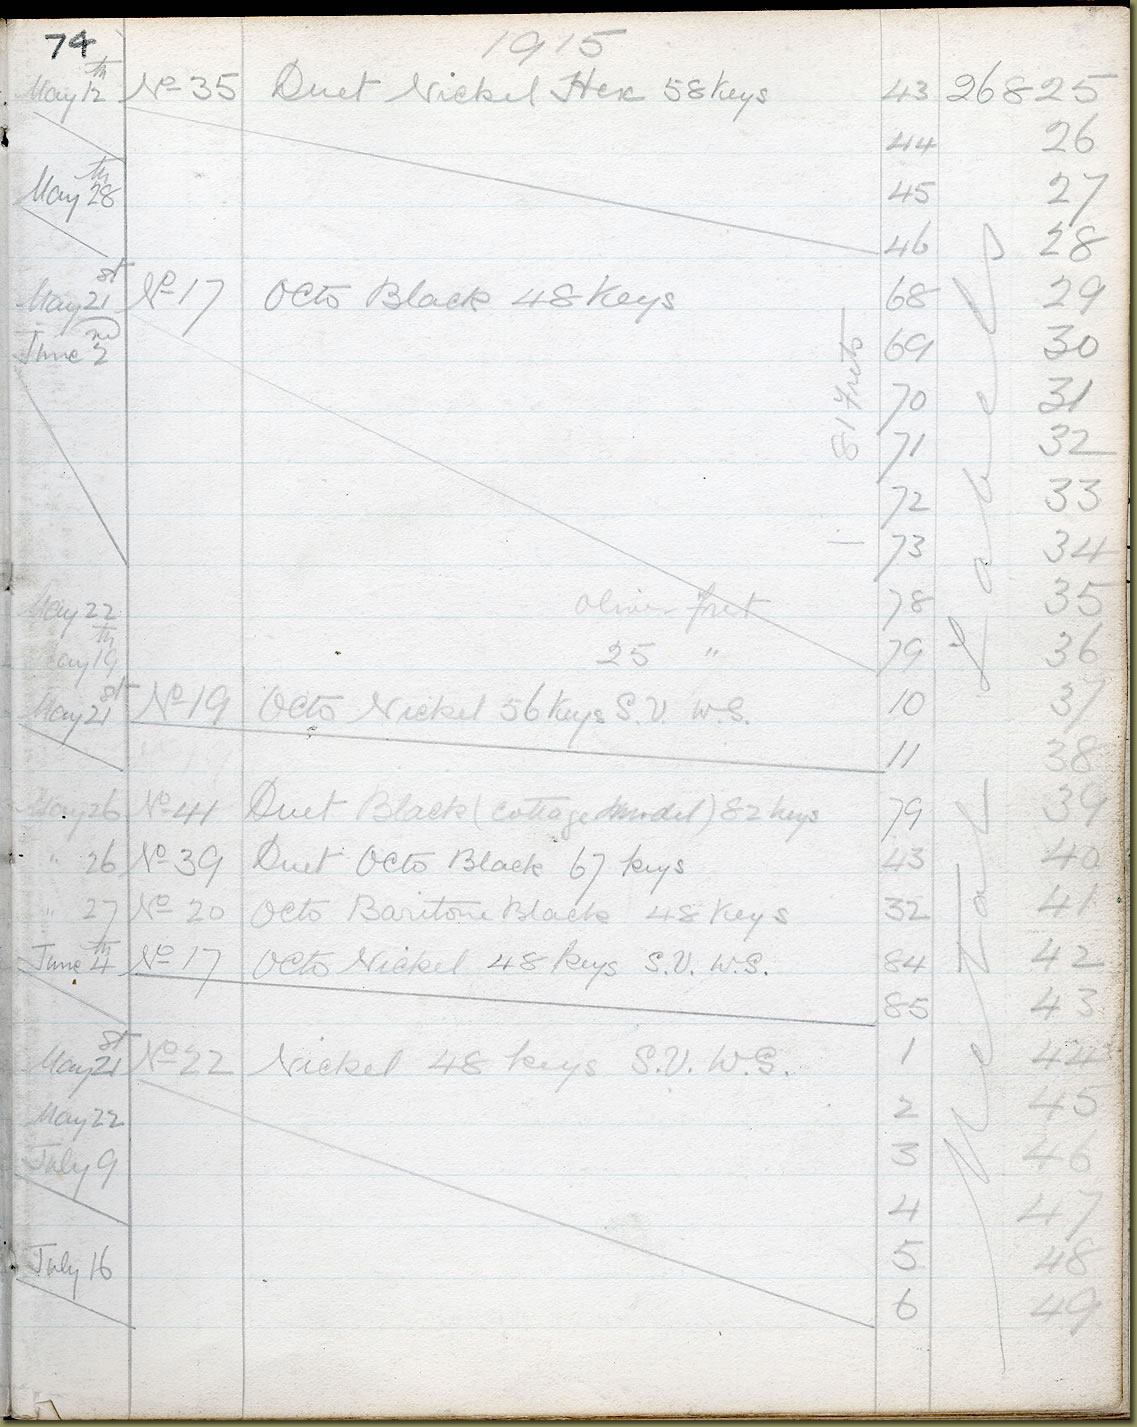 74 1915
May 12th No 35 Duet Nickel Hex 58 Keys 43 26825
44 26
May 28th 45 27
46 28
May 21st No 17 Octo Black 48 Keys 68 29
June 2nd 69 30
70 31
71 32
72 33
73 34
May 22 Oliver Fret 78 35
May 19th 25 " 79 36
May 21st No 19 Octo Nickel 56 Keys S.V. W.S. 10 37
11 38
May 26 No 41 Duet Black (Cottage Model) 82 Keys 79 39
" 26 No 39 Duet Octo Black 67 Keys 43 40
" 27 No 20 Octo Baritone Black 48 Keys 32 41
June 4th No 17 Octo Nickel 48 Keys S.V. W.S. 84 42
85 43
May 21st No 22 Nickel 48 Keys S.V. W.S. 1 44
May 22 2 45
July 9 3 46
4 47
July 16 5 48
6 49
81 Frets
Metal Labels